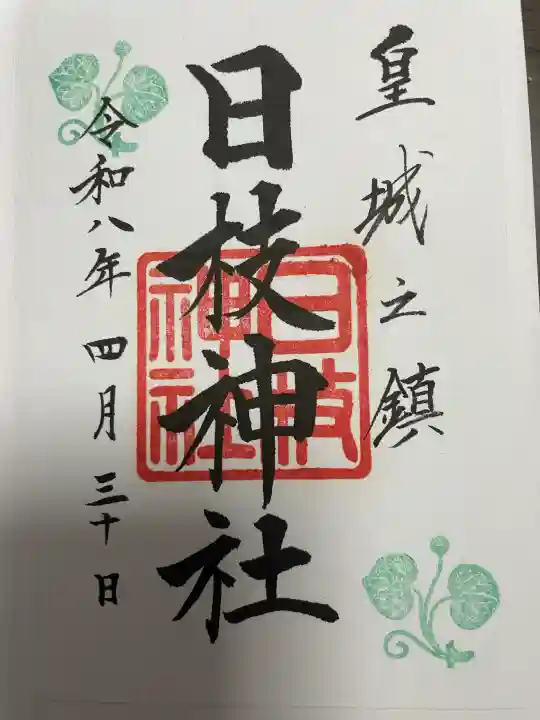 皇城之鎮
日枝神社
日枝神社
令和八年四月三十日